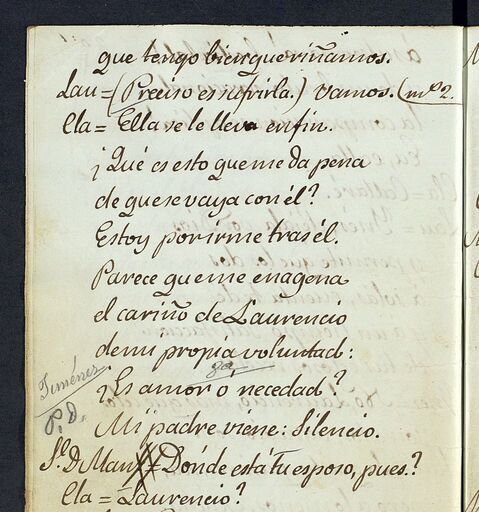 que tengo bien que riñamos.
Lau = (Preciso es sufrirla.) Vamos. (m.s 2.
Cla = Ella se le lleva en fin.
¡Qué es esto que me da pena
de que se vaya con él?
Estoy por irme tras él.
Parece que me enagena
el cariño de Laurencio
de mi propia voluntad:
¿Es amor ó necedad?
Jiménez
P. D.
Mi padre viene: Silencio.
S.r D. Man = Dónde está tu esposo, pues?
Cla = Laurencio?